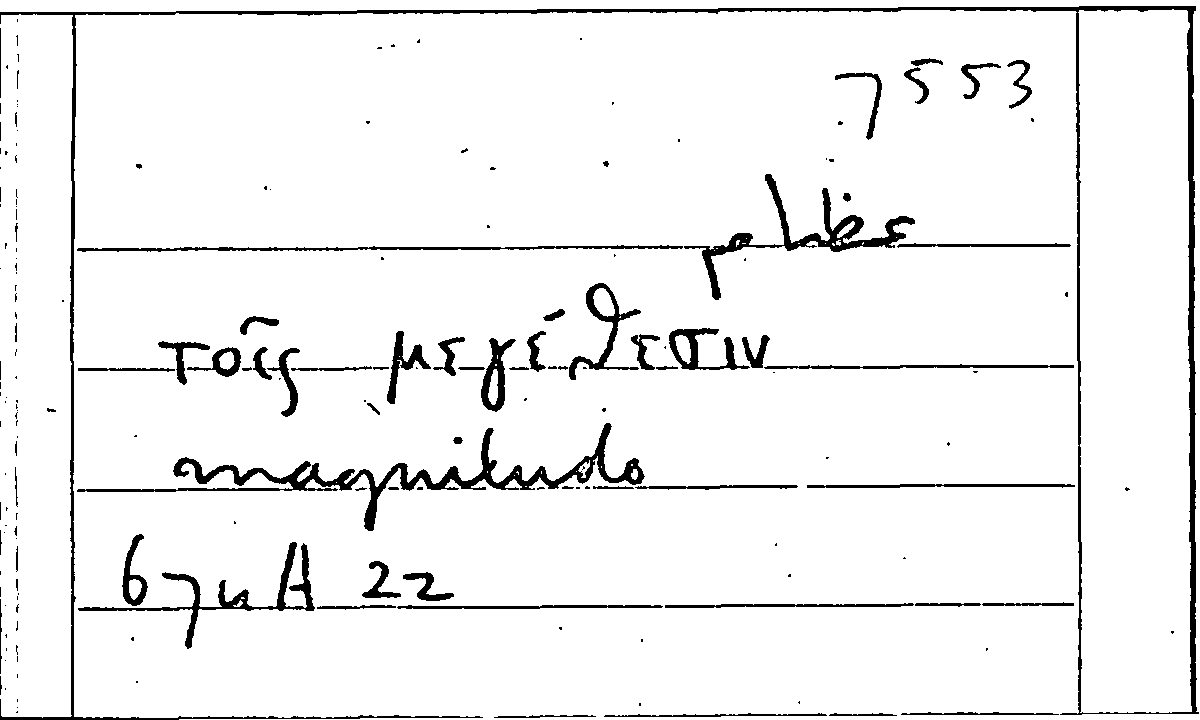 7553
τοῖς μεγέθεσιν
magnitudo
67uA 22